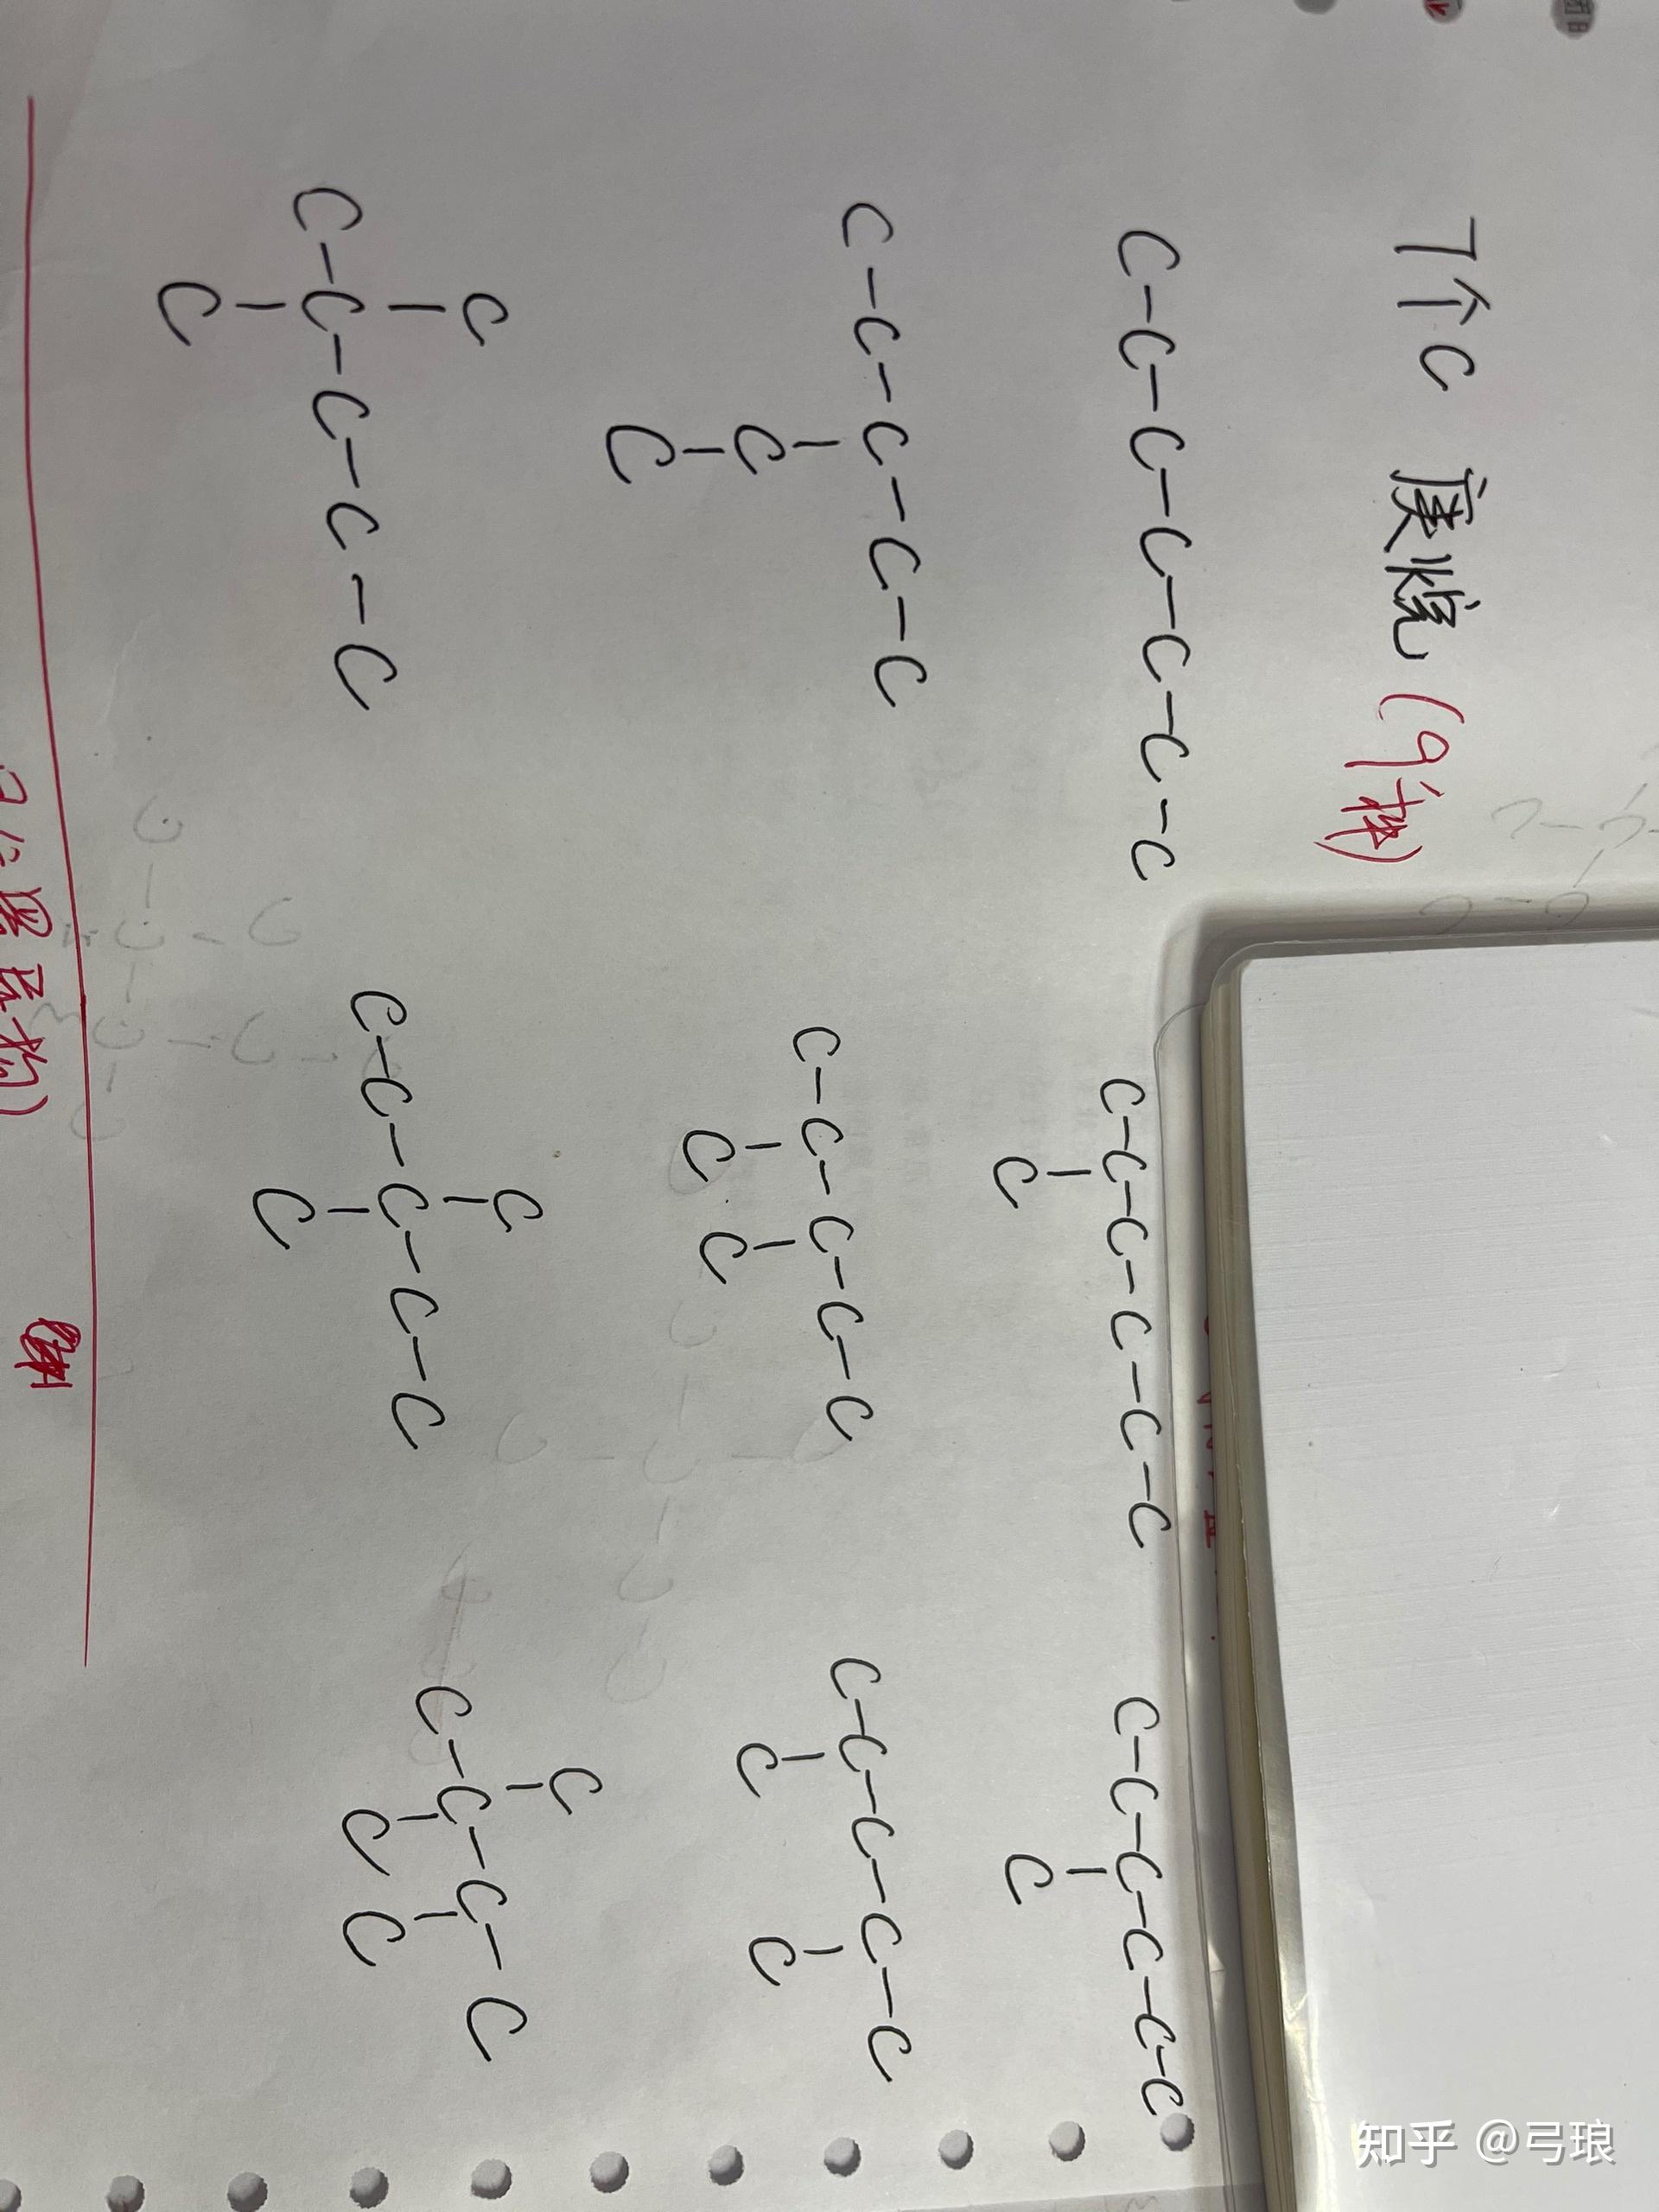 7个C 庚烷 (9种)
C-C-C-C-C-C-C C-C-C-C-C-C C-C-C-C-C-C
C C
C-C-C-C-C C-C-C-C-C C-C-C-C-C
C C C C C
C
C C C
C-C-C-C-C C-C-C-C-C C-C-C-C
C C C C
位置异构)
知乎 @弓琅